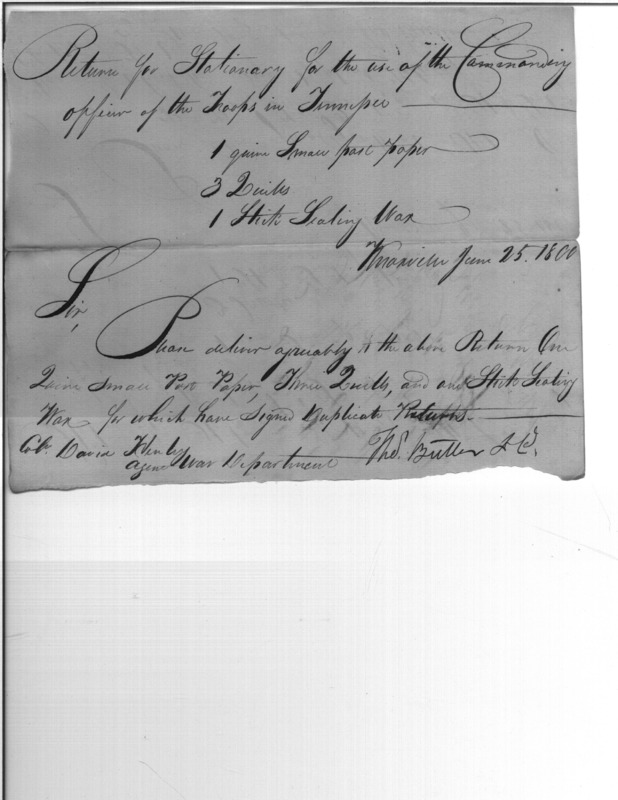 Return for Stationary for the use of the Commanding
officer of the Troops in Tennessee
1 quire Small post paper
3 Quills
1 Stick Sealing Wax
Knoxville June 25. 1800
Sir,
Please deliver agreeably to the above Return One
Quire Small Post Paper, Three Quills, and one Stick Sealing
Wax for which have Signed Duplicate Returns.
Colo. David Henley
Agent War Department
Tho.s Butler